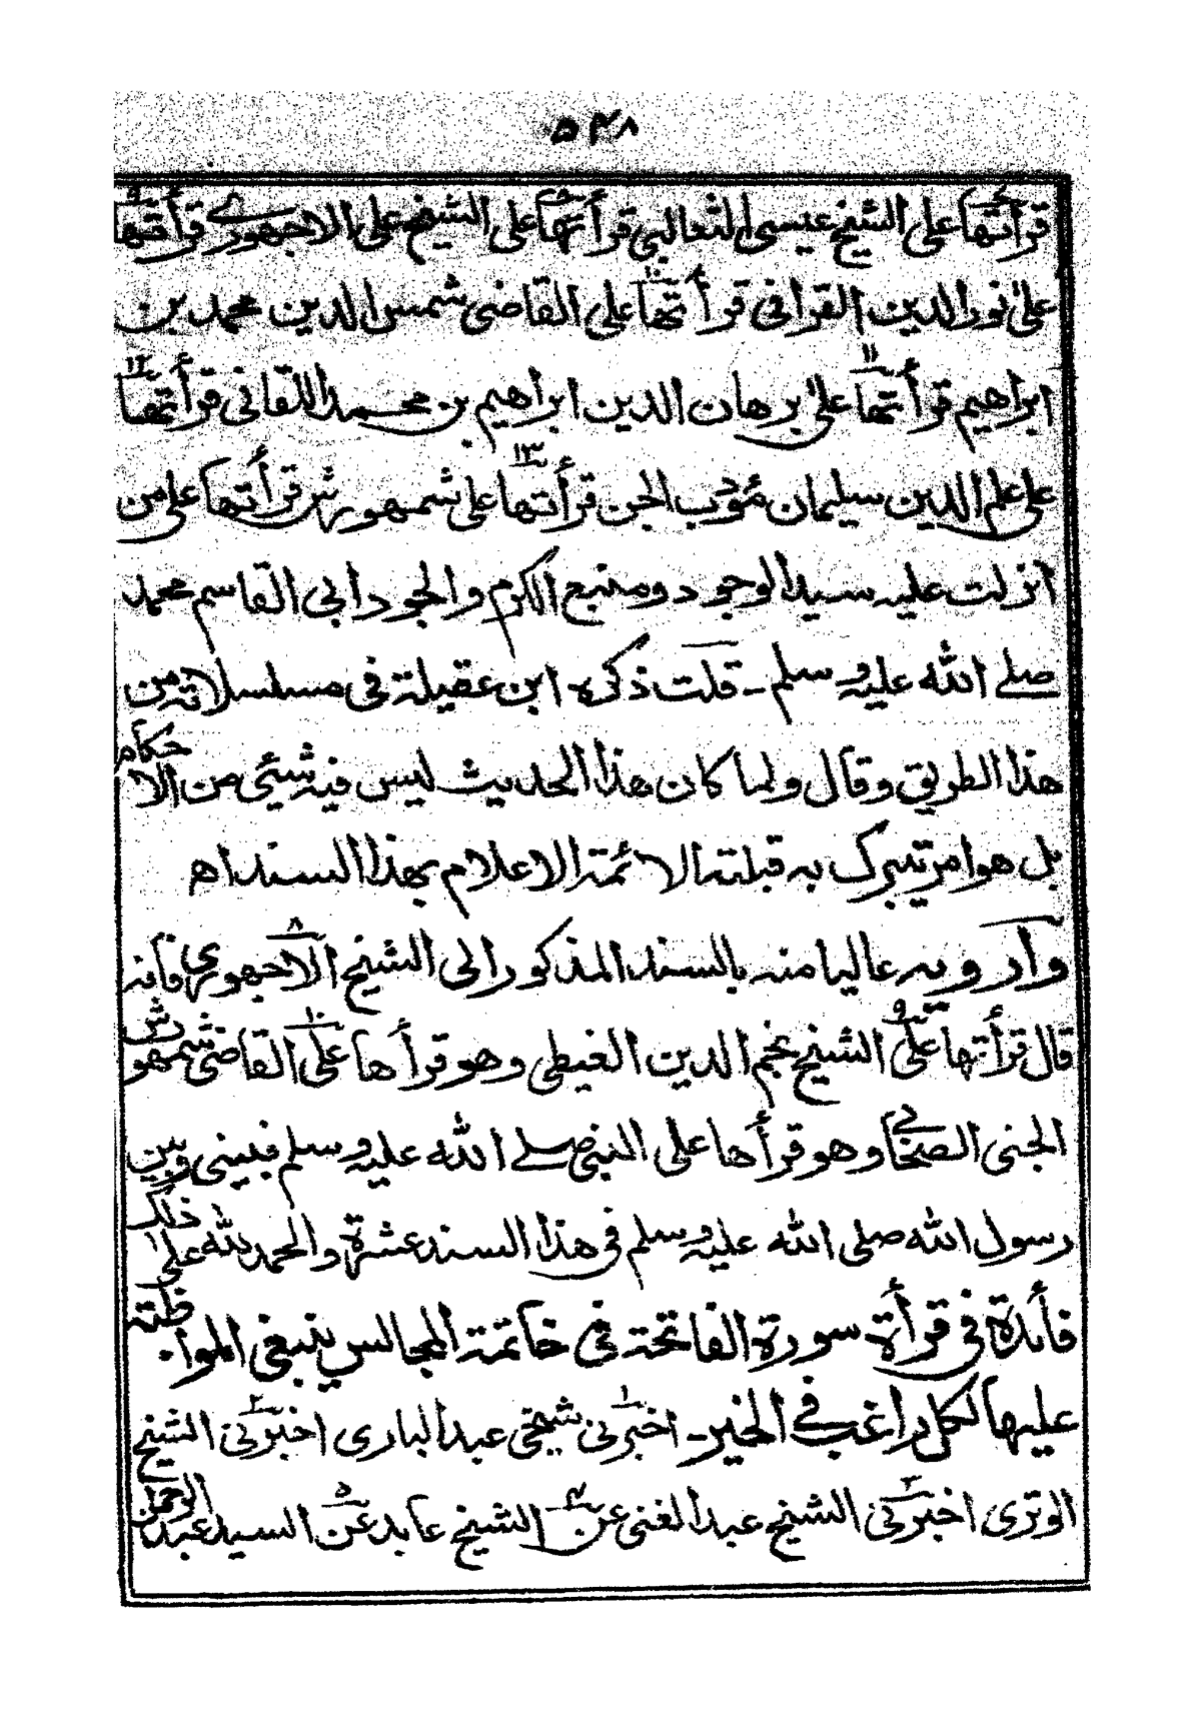 ٥٤٨
قرأتها على الشيخ عيسى الثعالبي قرأتها على الشيخ على الاجهوري قرأتها
على نور الدين القرافى قرأتها على القاضى شمس الدين محمد بن
ابراهيم قرأتها على برهان الدين ابراهيم بن محمد اللقانى قرأتها
على علم الدين سليمان مؤدب الجن قرأتها على شمهورش قرأتها على من
انزلت عليه سيد الوجود ومنبع الكرم والجود أبي القاسم محمد
صلى الله عليه وسلم - قلت ذكره ابن عقيلة فى مسلسلاته من
هذا الطريق وقال ولما كان هذا الحديث ليس فيه شيئى من الاحكام
بل هو امر تبرك به قبلته الائمة الاعلام بهذا السند اه
وأرويه عاليا منه بالسند المذكور الى الشيخ الاجهوري فانه
قال قرأتها على الشيخ نجم الدين الغيطى وهو قرأها على القاضى شمهورش
الجنى الصحابي وهو قرأها على النبي صلى الله عليه وسلم فبينى وبين
رسول الله صلى الله عليه وسلم فى هذا السند عشرة والحمد لله على ذلك
فأئدة فى قرأة سورة الفاتحة فى خاتمة المجالس ينبغى المواظبته
عليها لكل راغب في الخير - اخبرنى شيخى عبد البارى اخبرنى الشيخ
الوترى اخبرنى الشيخ عبد الغنى عن الشيخ عابد عن السيد عبد الرحمان